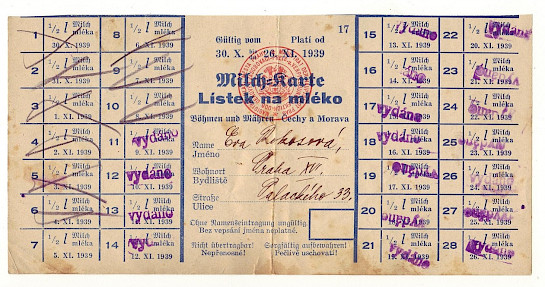 Gültig vom Platí od 17
30. X. 26. XI. 1939
Milch-Karte
Lístek na mléko
Böhmen und Mähren - Čechy a Morava
Name
Jméno
Eva
Wohnort
Bydliště
Praha XVI.
Straße
Ulice
Palackého 33.
Ohne Namenseintragung ungültig.
Bez vepsání jména neplatné.
Nicht übertragbar! Sorgfältig aufbewahren!
Nepřenosné! Pečlivě uschovati!
1 ½ l Milch mléka 30. X. 1939
2 ½ l Milch mléka
3 ½ l Milch mléka 1. XI. 1939
4 ½ l Milch mléka
5 ½ l Milch mléka 3. XI. 1939
6 ½ l Milch mléka 4. XI. 1939
7 ½ l Milch mléka 5. XI. 1939
8 ½ l Milch mléka 6. XI. 1939
9 ½ l Milch mléka 7. XI. 1939
10 ½ l Milch mléka 8. XI. 1939
11 ½ l Milch mléka 9. XI. 1939 vydáno
12 ½ l Milch mléka 10. XI. 1939 vydáno
13 ½ l Milch mléka vydáno
14 ½ l Milch mléka 12. XI. 1939
15 ½ l Milch mléka 13. XI. 1939 vydáno
16 ½ l Milch mléka 14. XI. 1939
17 ½ l Milch mléka vydáno
18 ½ l Milch mléka 16. XI. 1939 vydáno
19 ½ l Milch mléka vydáno
20 ½ l Milch mléka vydáno
21 ½ l Milch mléka 19. XI. 1939 vydáno
22 ½ l Milch mléka 20. XI. 1939 vydáno
23 ½ l Milch mléka 21. XI. 1939 vydáno
24 ½ l Milch mléka vydáno
25 ½ l Milch mléka 23. XI. 1939 vydáno
26 ½ l Milch mléka vydáno
27 ½ l Milch mléka 25. XI. 1939 vydáno
28 ½ l Milch mléka 26. XI. 1939 vydáno